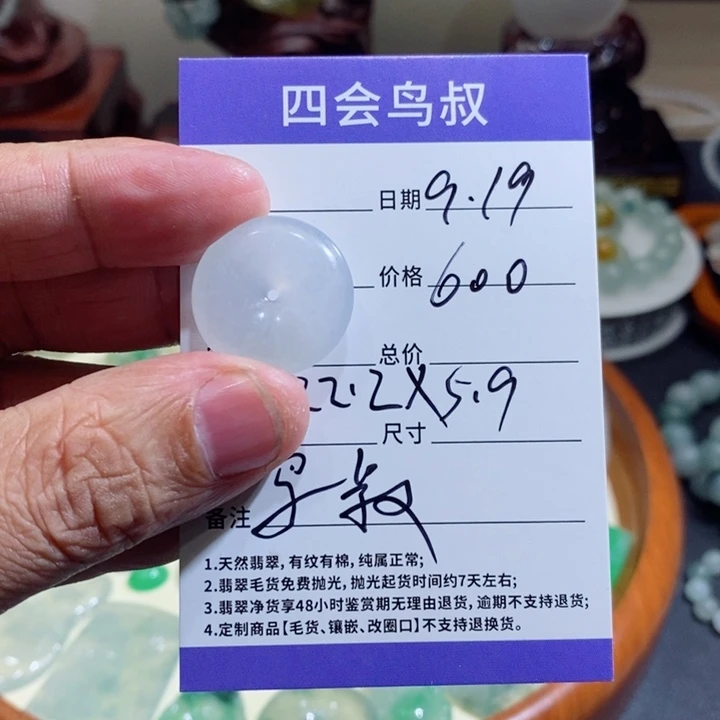 四会鸟叔
日期 9.19
价格 600
总价
22.2X5.9
尺寸
备注 鸟叔
1.天然翡翠,有纹有棉,纯属正常;
2.翡翠毛货免费抛光,抛光起货时间约7天左右;
3.翡翠净货享48小时鉴赏期无理由退货,逾期不支持退货;
4.定制商品【毛货、镶嵌、改圈口】不支持退换货。